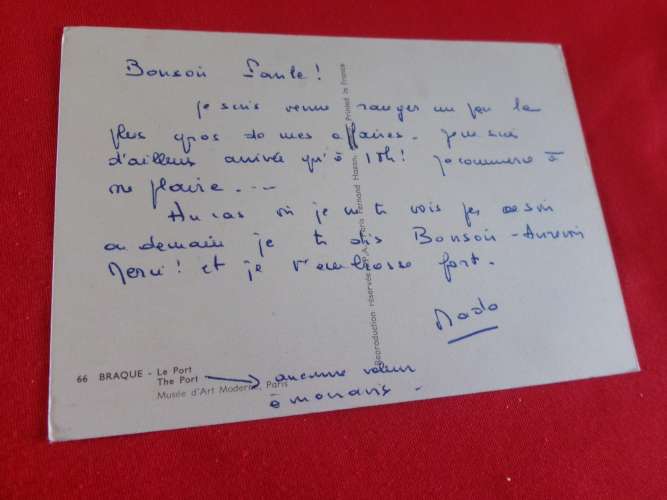 Bonsoir Paule !
je suis venue ranger un peu le
plus gros de mes affaires. Je ne suis
d'ailleurs arrivée qu'à 18h ! je commence à
me plaire . . .
Au cas où je ne te vois pas ce soir
ou demain je te dis Bonsoir - Aurevoir
Merci ! et je t'embrasse fort.
Mado
66 BRAQUE - Le Port
The Port
Musée d'Art Moderne, Paris
aucune valeur
à mon avis -
Reproduction réservée Paris Fernand Hazan, Printed in France